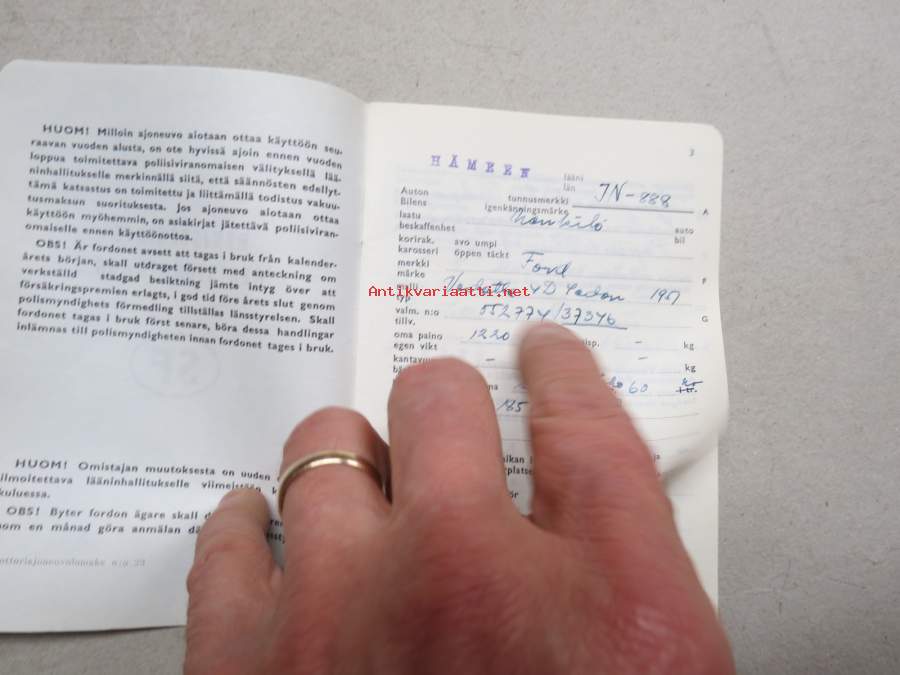 HUOM! Milloin ajoneuvo aiotaan ottaa käyttöön seu-
raavan vuoden alusta, on ote hyvissä ajoin ennen vuoden
loppua toimitettava poliisiviranomaisen välityksellä lää-
ninhallitukselle merkinnällä siitä, että säännösten edellyt-
tämä katsastus on toimitettu ja liittämällä todistus vakuu-
tusmaksun suorituksesta. Jos ajoneuvo aiotaan ottaa
käyttöön myöhemmin, on asiakirjat jätettävä poliisiviran-
omaiselle ennen käyttöönottoa.
OBS! Är fordonet avsett att tagas i bruk från kalender-
årets början, skall utdraget försett med anteckning om
verkställd stadgad besiktning jämte intyg över att
försäkringspremien erlagts, i god tid före årets slut genom
polismyndighets förmedling tillställas länsstyrelsen. Skall
fordonet tagas i bruk först senare, böra dessa handlingar
inlämnas till polismyndigheten innan fordonet tages i bruk.
HUOM! Omistajan muutoksesta on uuden
ilmoitettava lääninhallitukselle viimeistään
kuluessa.
OBS! Byter fordon ägare skall
om en månad göra anmälan
3
HÄMEEN lääni
län
Auton tunnusmerkki JN-888 A
Bilens igenkänningsmärke
laatu Henkilö auto
beskaffenhet bil
korirak. avo umpi
karosseri öppen täckt
merkki Ford F
märke
malli 4D Sedan 195
typ
valm. n:o 552774/37346 G
tillv.
oma paino 1220 kg
egen vikt
kg
60
185
Antikvariaatti.net